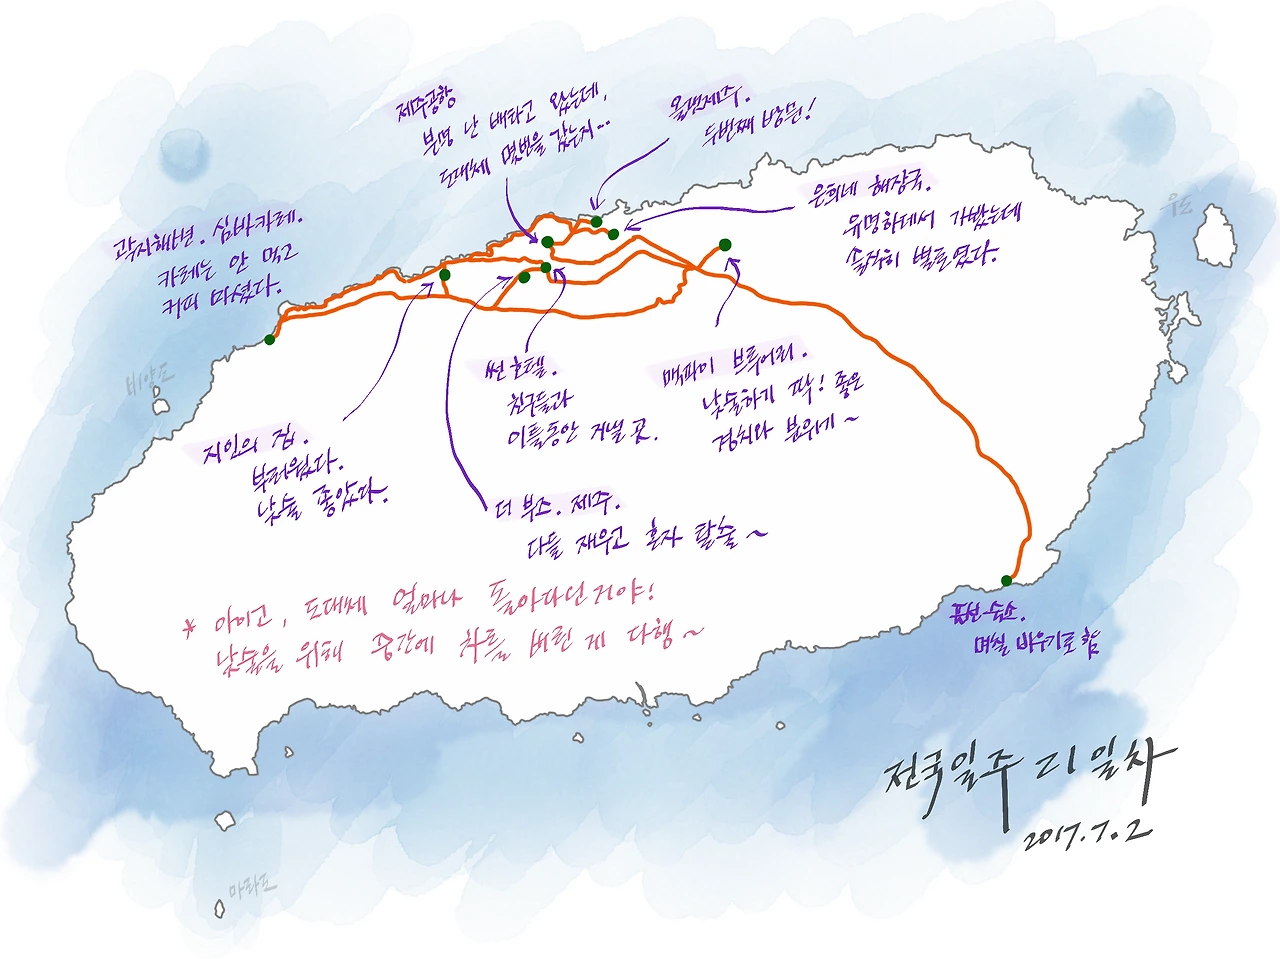 제주공항
분명 난 배타고 왔는데,
도대체 몇번을 갔는지…
올댓제주.
두번째 방문!
은희네 해장국.
유명하데서 가봤는데
솔직히 별로였다.
우도
곽지해변. 심바카레.
카레는 안 먹고
커피 마셨다.
비양도
썬호텔.
친구들과
이틀동안 지낼 곳.
맥파이 브루어리.
낮술하기 딱! 좋은
경치와 분위기~
지인의 집.
부러웠다.
낮술 좋았다.
더 부즈. 제주.
다들 재우고 혼자 탈출~
* 아이고, 도대체 얼마나 돌아다닌거야!
낮술을 위해 중간에 차를 버린 게 다행~
표선 숙소.
며칠 비우기로 함
전국일주 21일차
2017.7.2
마라도